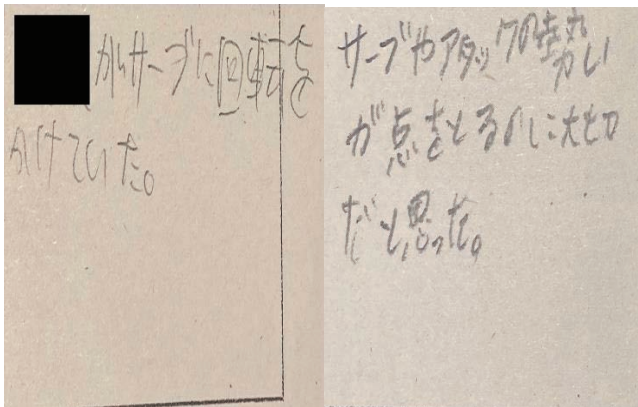 がサーブに回転を
かけていた。
サーブやアタックの勢い
が点をとるのに大切
だと思った。